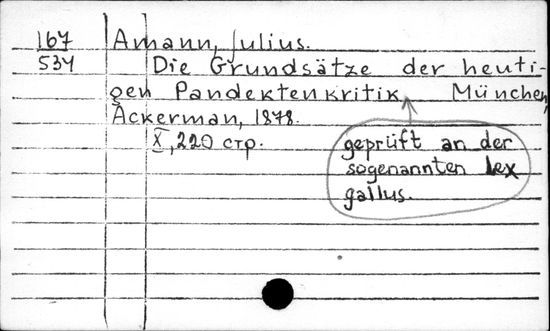 167 Amann, Julius.
534 Die Grundsätze der heuti-
gen Pandektenkritik, München,
Ackerman, 1878.
X, 220 стр.
geprüft an der
sogenannten lex
gallus.